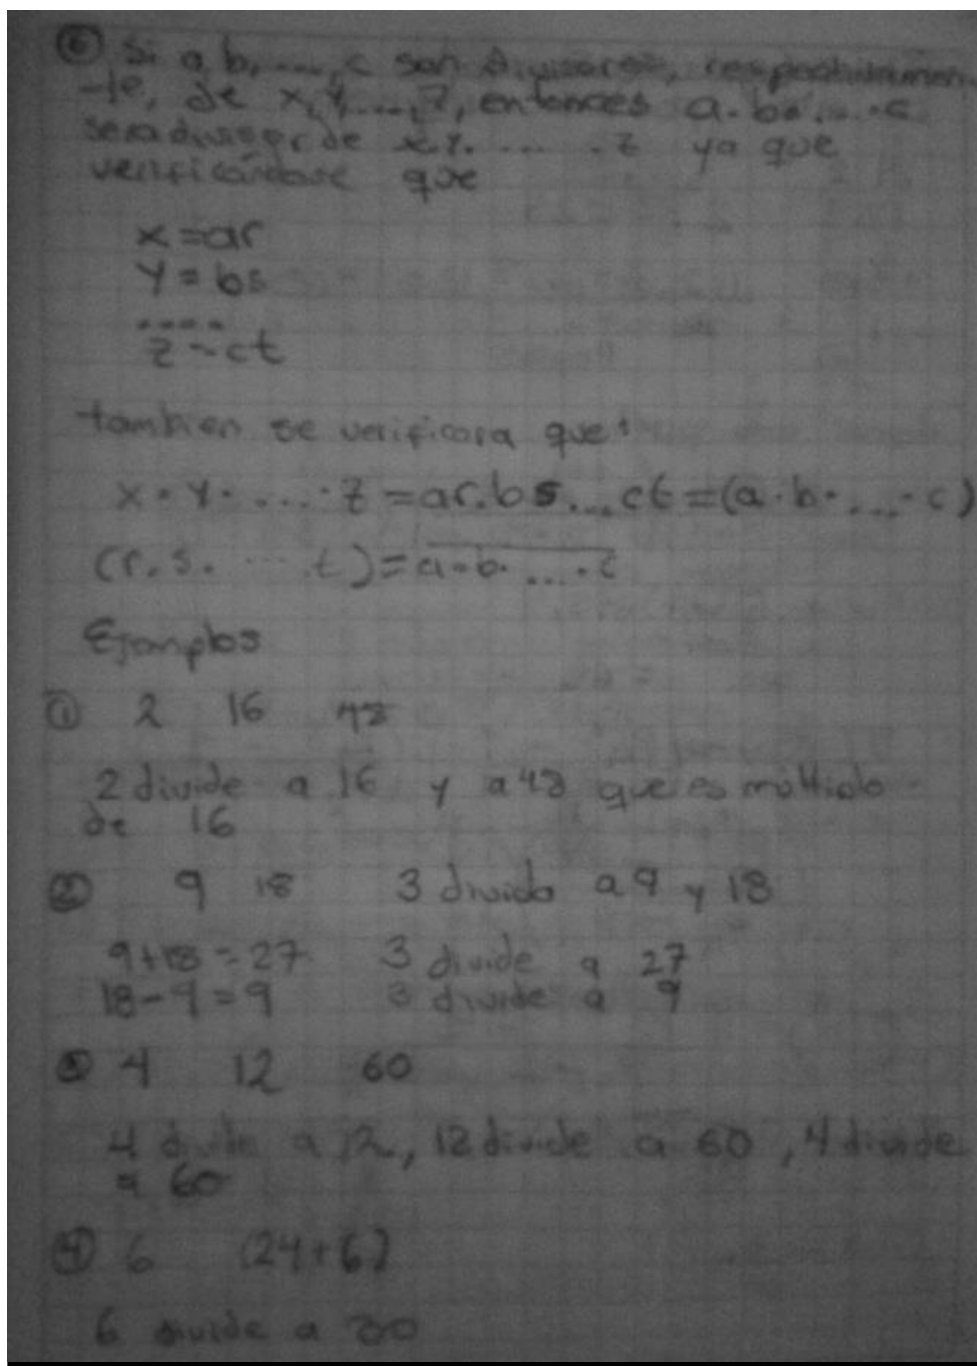 ⑥ Si a, b, ...., c son divisores, respectivamen-
-te, de x, y, ...., z, entonces a . b . .... . c
sera divisor de x.y. .... . z ya que
verificandose que
x = ar
y = bs
....
z = ct
tambien se verificara que:
x . y . .... . z = ar.bs....ct = (a . b . .... . c)
(r . s . .... . t) = a . b . .... . c
Ejemplos
① 2 16 48
2 divide a 16 y a 48 que es multiplo
de 16
② 9 18 3 divido a 9 y 18
9+18 = 27 3 divide a 27
18-9 = 9 3 divide a 9
③ 4 12 60
4 divide a 12, 12 divide a 60, 4 divide
a 60
④ 6 (24+6)
6 divide a 30